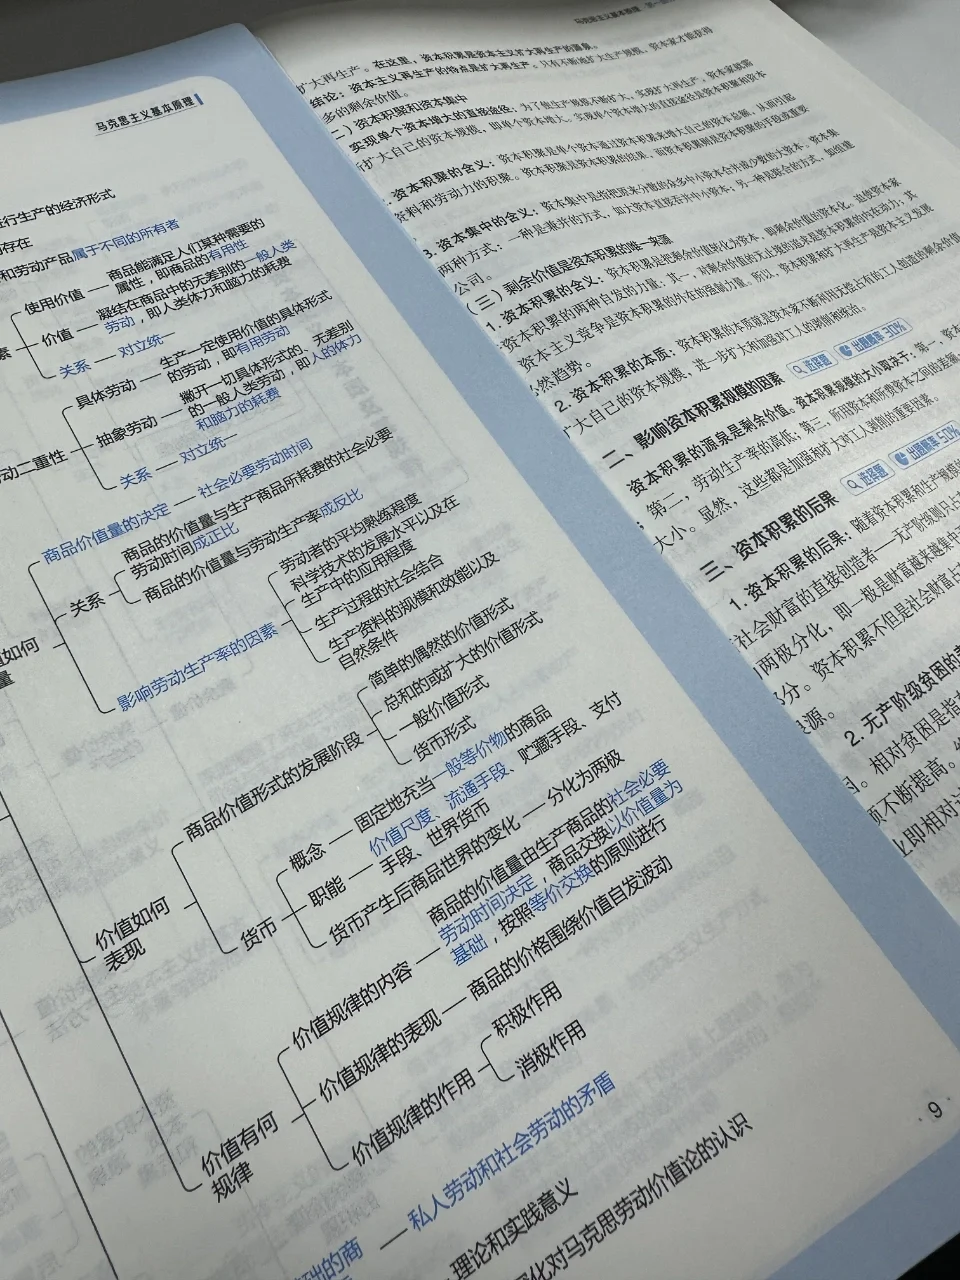 马克思主义基本原理
行生产的经济形式
存在
和劳动产品属于不同的所有者
使用价值
商品能满足人们某种需要的
属性，即商品的有用性
素
价值
凝结在商品中的无差别的一般人类
劳动，即人类体力和脑力的耗费
关系
对立统一
具体劳动
生产一定使用价值的具体形式
的劳动，即有用劳动
动二重性
抽象劳动
撇开一切具体形式的、无差别
的一般人类劳动，即人的体力
和脑力的耗费
关系
对立统一
商品价值量的决定
社会必要劳动时间
如何
量
关系
商品的价值量与生产商品所耗费的社会必要
劳动时间成正比
商品的价值量与劳动生产率成反比
影响劳动生产率的因素
劳动者的平均熟练程度
科学技术的发展水平以及在
生产中的应用程度
生产过程的社会结合
生产资料的规模和效能以及
自然条件
价值如何
表现
商品价值形式的发展阶段
简单的偶然的价值形式
总和的或扩大的价值形式
一般价值形式
货币形式
货币
概念
固定地充当一般等价物的商品
职能
价值尺度、流通手段、贮藏手段、支付
手段、世界货币
货币产生后商品世界的变化
分化为两极
价值有何
规律
价值规律的内容
商品的价值量由生产商品的社会必要
劳动时间决定，商品交换以价值量为
基础，按照等价交换的原则进行
价值规律的表现
商品的价格围绕价值自发波动
价值规律的作用
积极作用
消极作用
础的商
私人劳动和社会劳动的矛盾
理论和实践意义
化对马克思劳动价值论的认识
9
马克思主义基本原理
扩大再生产。在这里，资本积累是资本主义扩大再生产的源泉。
结论：资本主义再生产的特点是扩大再生产。只有不断地扩大生产规模，资本家才能获得
多的剩余价值。
二）资本积聚和资本集中
实现单个资本增大的直接途径：为了使生产规模不断扩大，实现扩大再生产，资本家就需
扩大自己的资本规模，即单个资本增大。实现单个资本增大的直接途径是资本积聚和资本
资本积聚的含义：资本积聚是指个别资本通过资本积累来增大自己的资本总额，从而引起
资料和劳动力的积聚。资本积聚是资本积累的结果，而资本积累则是资本积聚的手段或重要
3. 资本集中的含义：资本集中是指把原来分散的众多中小资本合并成少数的大资本。资本集
两种方式：一种是兼并的方式，如大资本直接吞并中小资本；另一种是联合的方式，如组建
公司。
（三）剩余价值是资本积累的唯一来源
1. 资本积累的含义：资本积累是把剩余价值转化为资本，即剩余价值的资本化。迫使资本家
资本积累的两种自发的力量：其一，对剩余价值的无止境的追求是资本积累的内在动力；其
资本主义竞争是资本积累的外在的强制力量。所以，资本积累和扩大再生产是资本主义发展
必然趋势。
2. 资本积累的本质：资本积累的本质就是资本家不断利用无偿占有的工人创造的剩余价值
扩大自己的资本规模，进一步扩大和加强对工人的剥削和统治。
二、影响资本积累规模的因素 选择题 出题概率 30%
资本积累的源泉是剩余价值。资本积累规模的大小取决于：第一，资本
第二，劳动生产率的高低；第三，所用资本和所费资本之间的差额
大小。显然，这些都是加强和扩大对工人剥削的重要因素。
三、资本积累的后果 选择题 出题概率 50%
1. 资本积累的后果：随着资本积累和生产规模的
社会财富的直接创造者——无产阶级则只占
两极分化，即一极是财富越来越集中
部分。资本积累不但是社会财富占
根源。
2. 无产阶级贫困的
相对贫困是指
不断提高。
立即相对